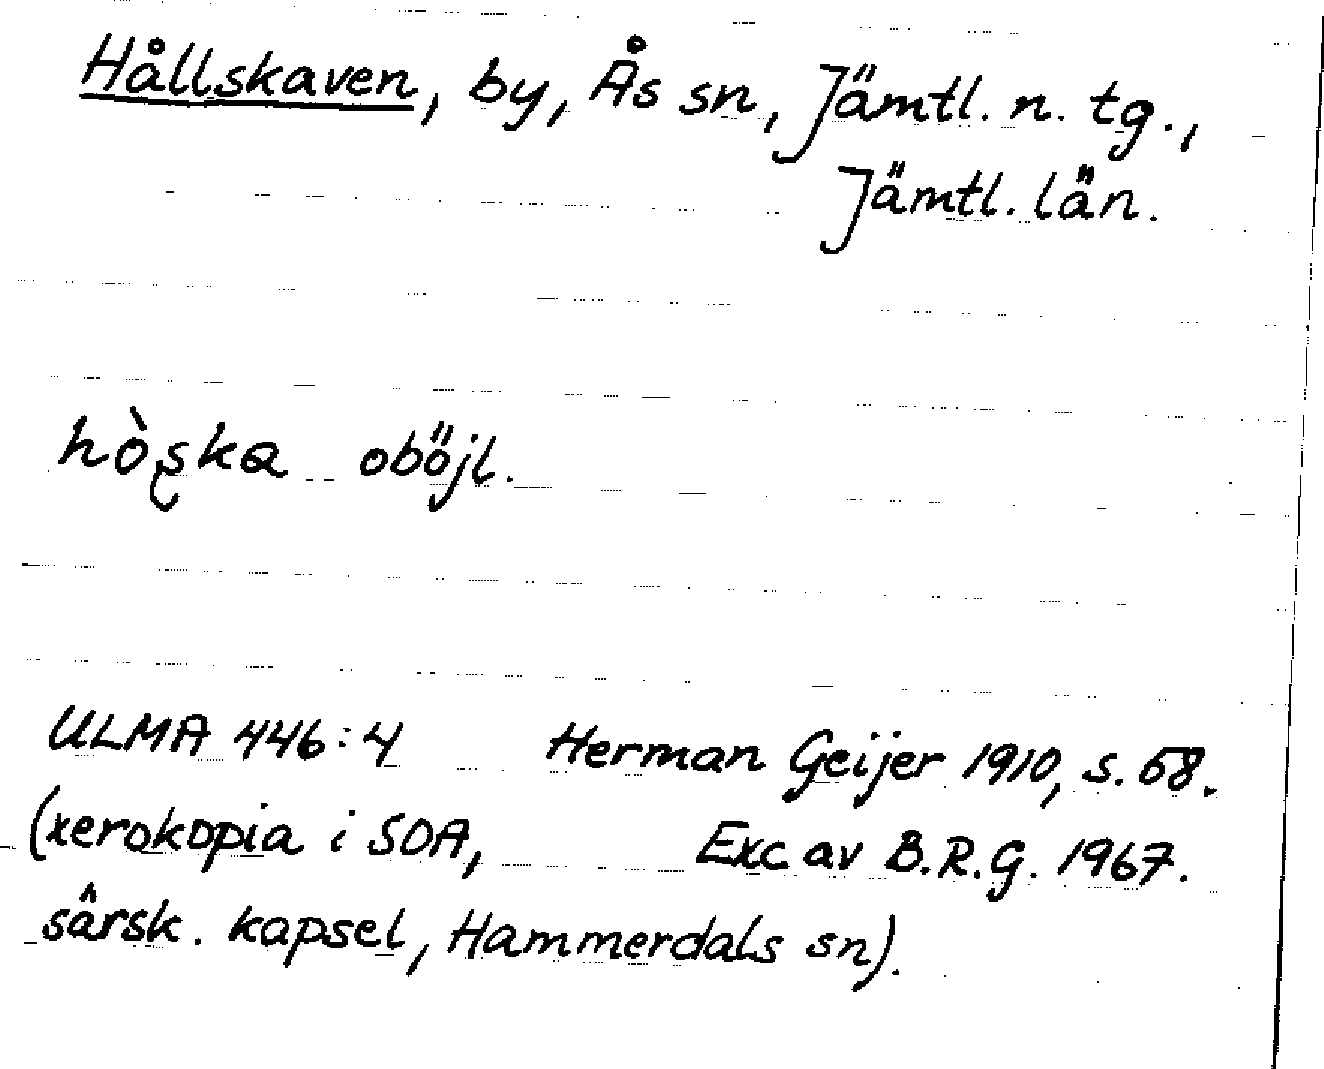 Hållskaven, by, Ås sn, Jämtl. n. tg.,
Jämtl. län.
hòʂka oböjl.
ULMA 446:4 Herman Geijer 1910, s. 58.
(xerokopia i SOA, Exc av B.R.G. 1967.
särsk. kapsel, Hammerdals sn).